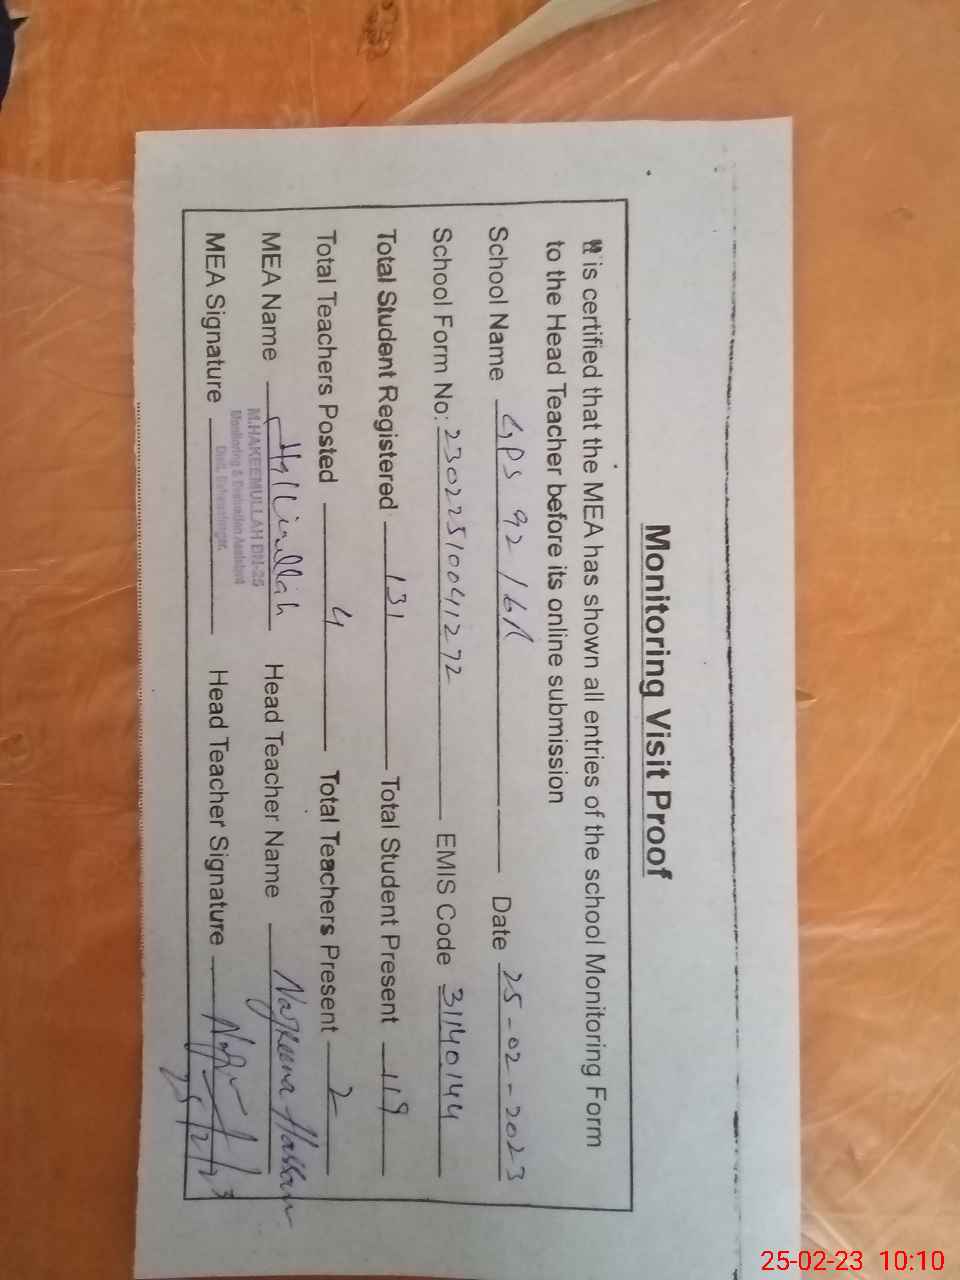 Monitoring Visit Proof
It is certified that the MEA has shown all entries of the school Monitoring Form
to the Head Teacher before its online submission
School Name GPS 92/6R Date 25-02-2023
School Form No: 230225100041272 EMIS Code 31140144
Total Student Registered 131 Total Student Present 119
Total Teachers Posted 4 Total Teachers Present 2
MEA Name Head Teacher Name Hassan
M.HAKEEMULLAH BN-25
Monitoring & Evaluation Assistant
MEA Signature Head Teacher Signature
25/2/23
25-02-23 10:10